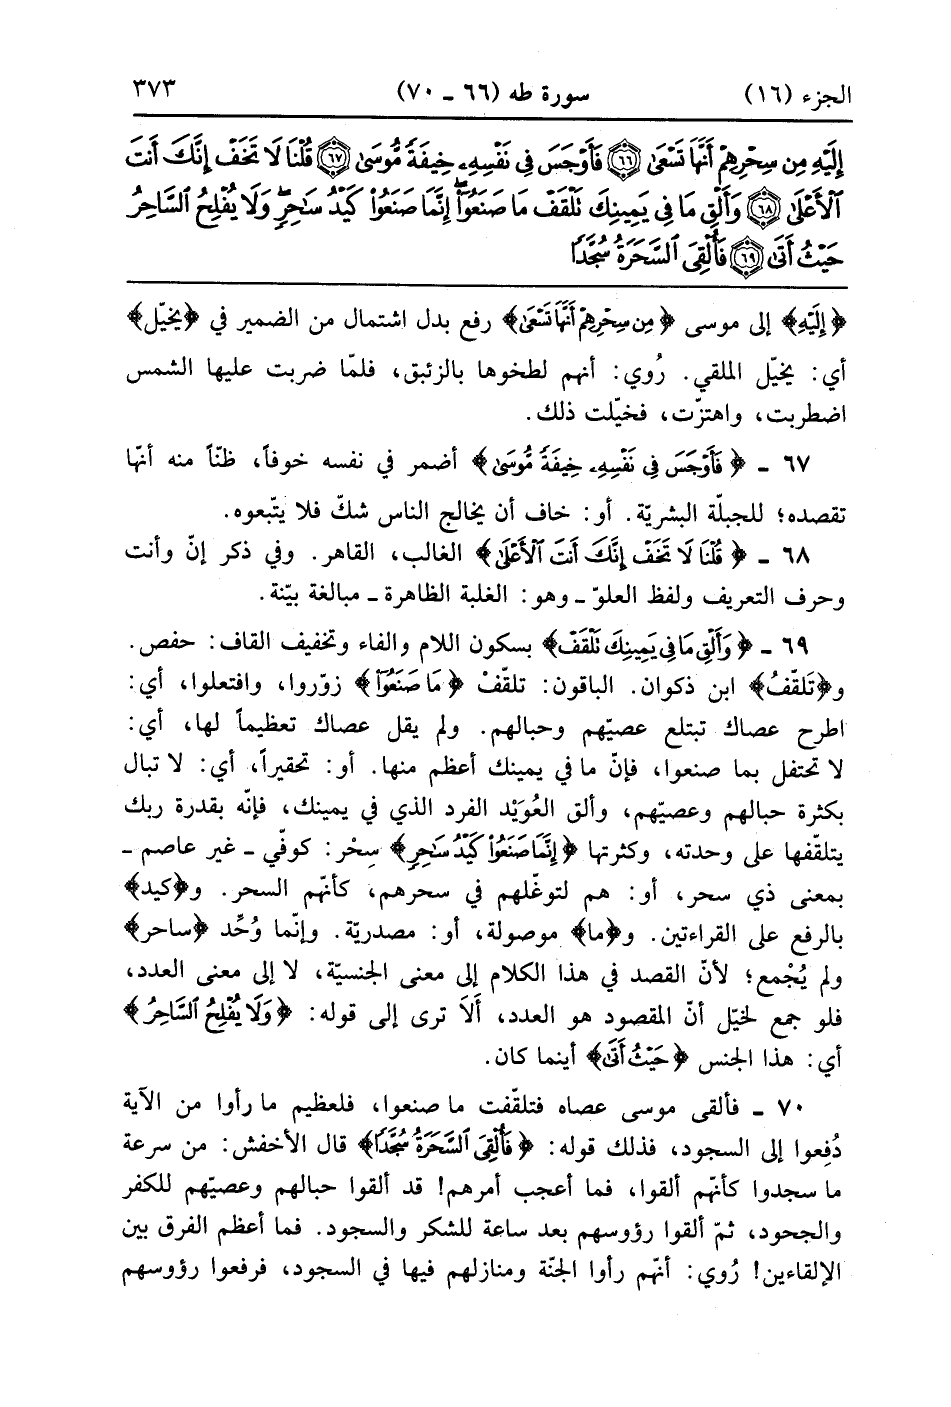 الجزء (١٦) سورة طه (٦٦ ـ ٧٠) ٣٧٣
إِلَيْهِ مِن سِحْرِهِمْ أَنَّهَا تَسْعَىٰ ﴿٦٦﴾ فَأَوْجَسَ فِى نَفْسِهِۦ خِيفَةً مُّوسَىٰ ﴿٦٧﴾ قُلْنَا لَا تَخَفْ إِنَّكَ أَنتَ
ٱلْأَعْلَىٰ ﴿٦٨﴾ وَأَلْقِ مَا فِى يَمِينِكَ تَلْقَفْ مَا صَنَعُوٓا۟ إِنَّمَا صَنَعُوا۟ كَيْدُ سَٰحِرٍ وَلَا يُفْلِحُ ٱلسَّاحِرُ
حَيْثُ أَتَىٰ ﴿٦٩﴾ فَأُلْقِىَ ٱلسَّحَرَةُ سُجَّدًا
﴿إِلَيْهِ﴾ إلى موسى ﴿مِن سِحْرِهِمْ أَنَّهَا تَسْعَىٰ﴾ رفع بدل اشتمال من الضمير في ﴿يخيّل﴾
أي: يخيّل الملقي. رُوي: أنهم لطخوها بالزئبق، فلمّا ضربت عليها الشمس
اضطربت، واهتزّت، فخيّلت ذلك.
٦٧ ـ ﴿فَأَوْجَسَ فِى نَفْسِهِۦ خِيفَةً مُّوسَىٰ﴾ أضمر في نفسه خوفاً، ظنّاً منه أنهّا
تقصده؛ للجبلّة البشريّة. أو: خاف أن يخالج الناس شكّ فلا يتّبعوه.
٦٨ ـ ﴿قُلْنَا لَا تَخَفْ إِنَّكَ أَنتَ ٱلْأَعْلَىٰ﴾ الغالب، القاهر. وفي ذكر إنّ وأنت
وحرف التعريف ولفظ العلوّ ـ وهو: الغلبة الظاهرة ـ مبالغة بيّنة.
٦٩ ـ ﴿وَأَلْقِ مَا فِى يَمِينِكَ تَلْقَفْ﴾ بسكون اللام والفاء وتخفيف القاف: حفص.
و﴿تَلقّفُ﴾ ابن ذكوان. الباقون: تلقّفْ ﴿مَا صَنَعُوٓا۟﴾ زوّروا، وافتعلوا، أي:
اطرح عصاك تبتلع عصيّهم وحبالهم. ولم يقل عصاك تعظيماً لها، أي:
لا تحتفل بما صنعوا، فإنّ ما في يمينك أعظم منها. أو: تحقيراً، أي: لا تبال
بكثرة حبالهم وعصيّهم، وألق العُوَيْد الفرد الذي في يمينك، فإنّه بقدرة ربك
يتلقّفها على وحدته، وكثرتها ﴿إِنَّمَا صَنَعُوا۟ كَيْدُ سَٰحِرٍ﴾ سِحْر: كوفّي ـ غير عاصم ـ
بمعنى ذي سحر، أو: هم لتوغّلهم في سحرهم، كأنهّم السحر. و﴿كيد﴾
بالرفع على القراءتين. و﴿ما﴾ موصولة، أو: مصدريّة. وإنّما وُحِّد ﴿ساحر﴾
ولم يُجْمع؛ لأنّ القصد في هذا الكلام إلى معنى الجنسيّة، لا إلى معنى العدد،
فلو جمع لخيّل أنّ المقصود هو العدد، ألَا ترى إلى قوله: ﴿وَلَا يُفْلِحُ ٱلسَّاحِرُ﴾
أي: هذا الجنس ﴿حَيْثُ أَتَىٰ﴾ أينما كان.
٧٠ ـ فألقى موسى عصاه فتلقّفت ما صنعوا، فلعظيم ما رأوا من الآية
دُفِعوا إلى السجود، فذلك قوله: ﴿فَأُلْقِىَ ٱلسَّحَرَةُ سُجَّدًا﴾ قال الأخفش: من سرعة
ما سجدوا كأنهّم ألقوا، فما أعجب أمرهم! قد ألقوا حبالهم وعصيّهم للكفر
والجحود، ثمّ ألقوا رؤوسهم بعد ساعة للشكر والسجود. فما أعظم الفرق بين
الإلقاءين! رُوي: أنهّم رأوا الجنّة ومنازلهم فيها في السجود، فرفعوا رؤوسهم